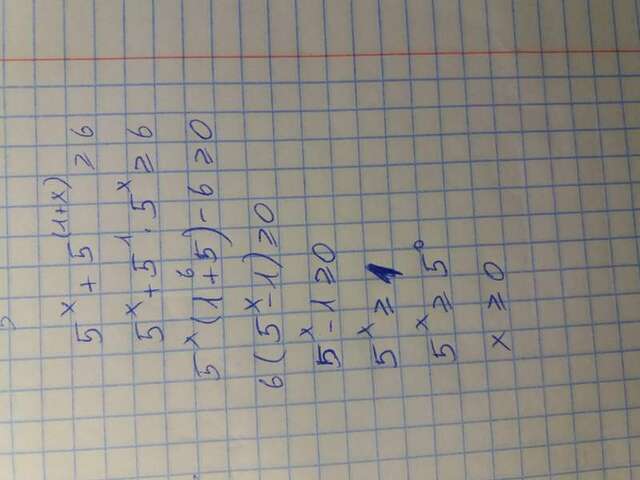 5^x + 5^(1+x) ≥ 6
5^x + 5^1 · 5^x ≥ 6
5^x (1 + 5) - 6 ≥ 0
6
6 (5^x - 1) ≥ 0
5^x - 1 ≥ 0
5^x ≥ 1
5^x ≥ 5^0
x ≥ 0